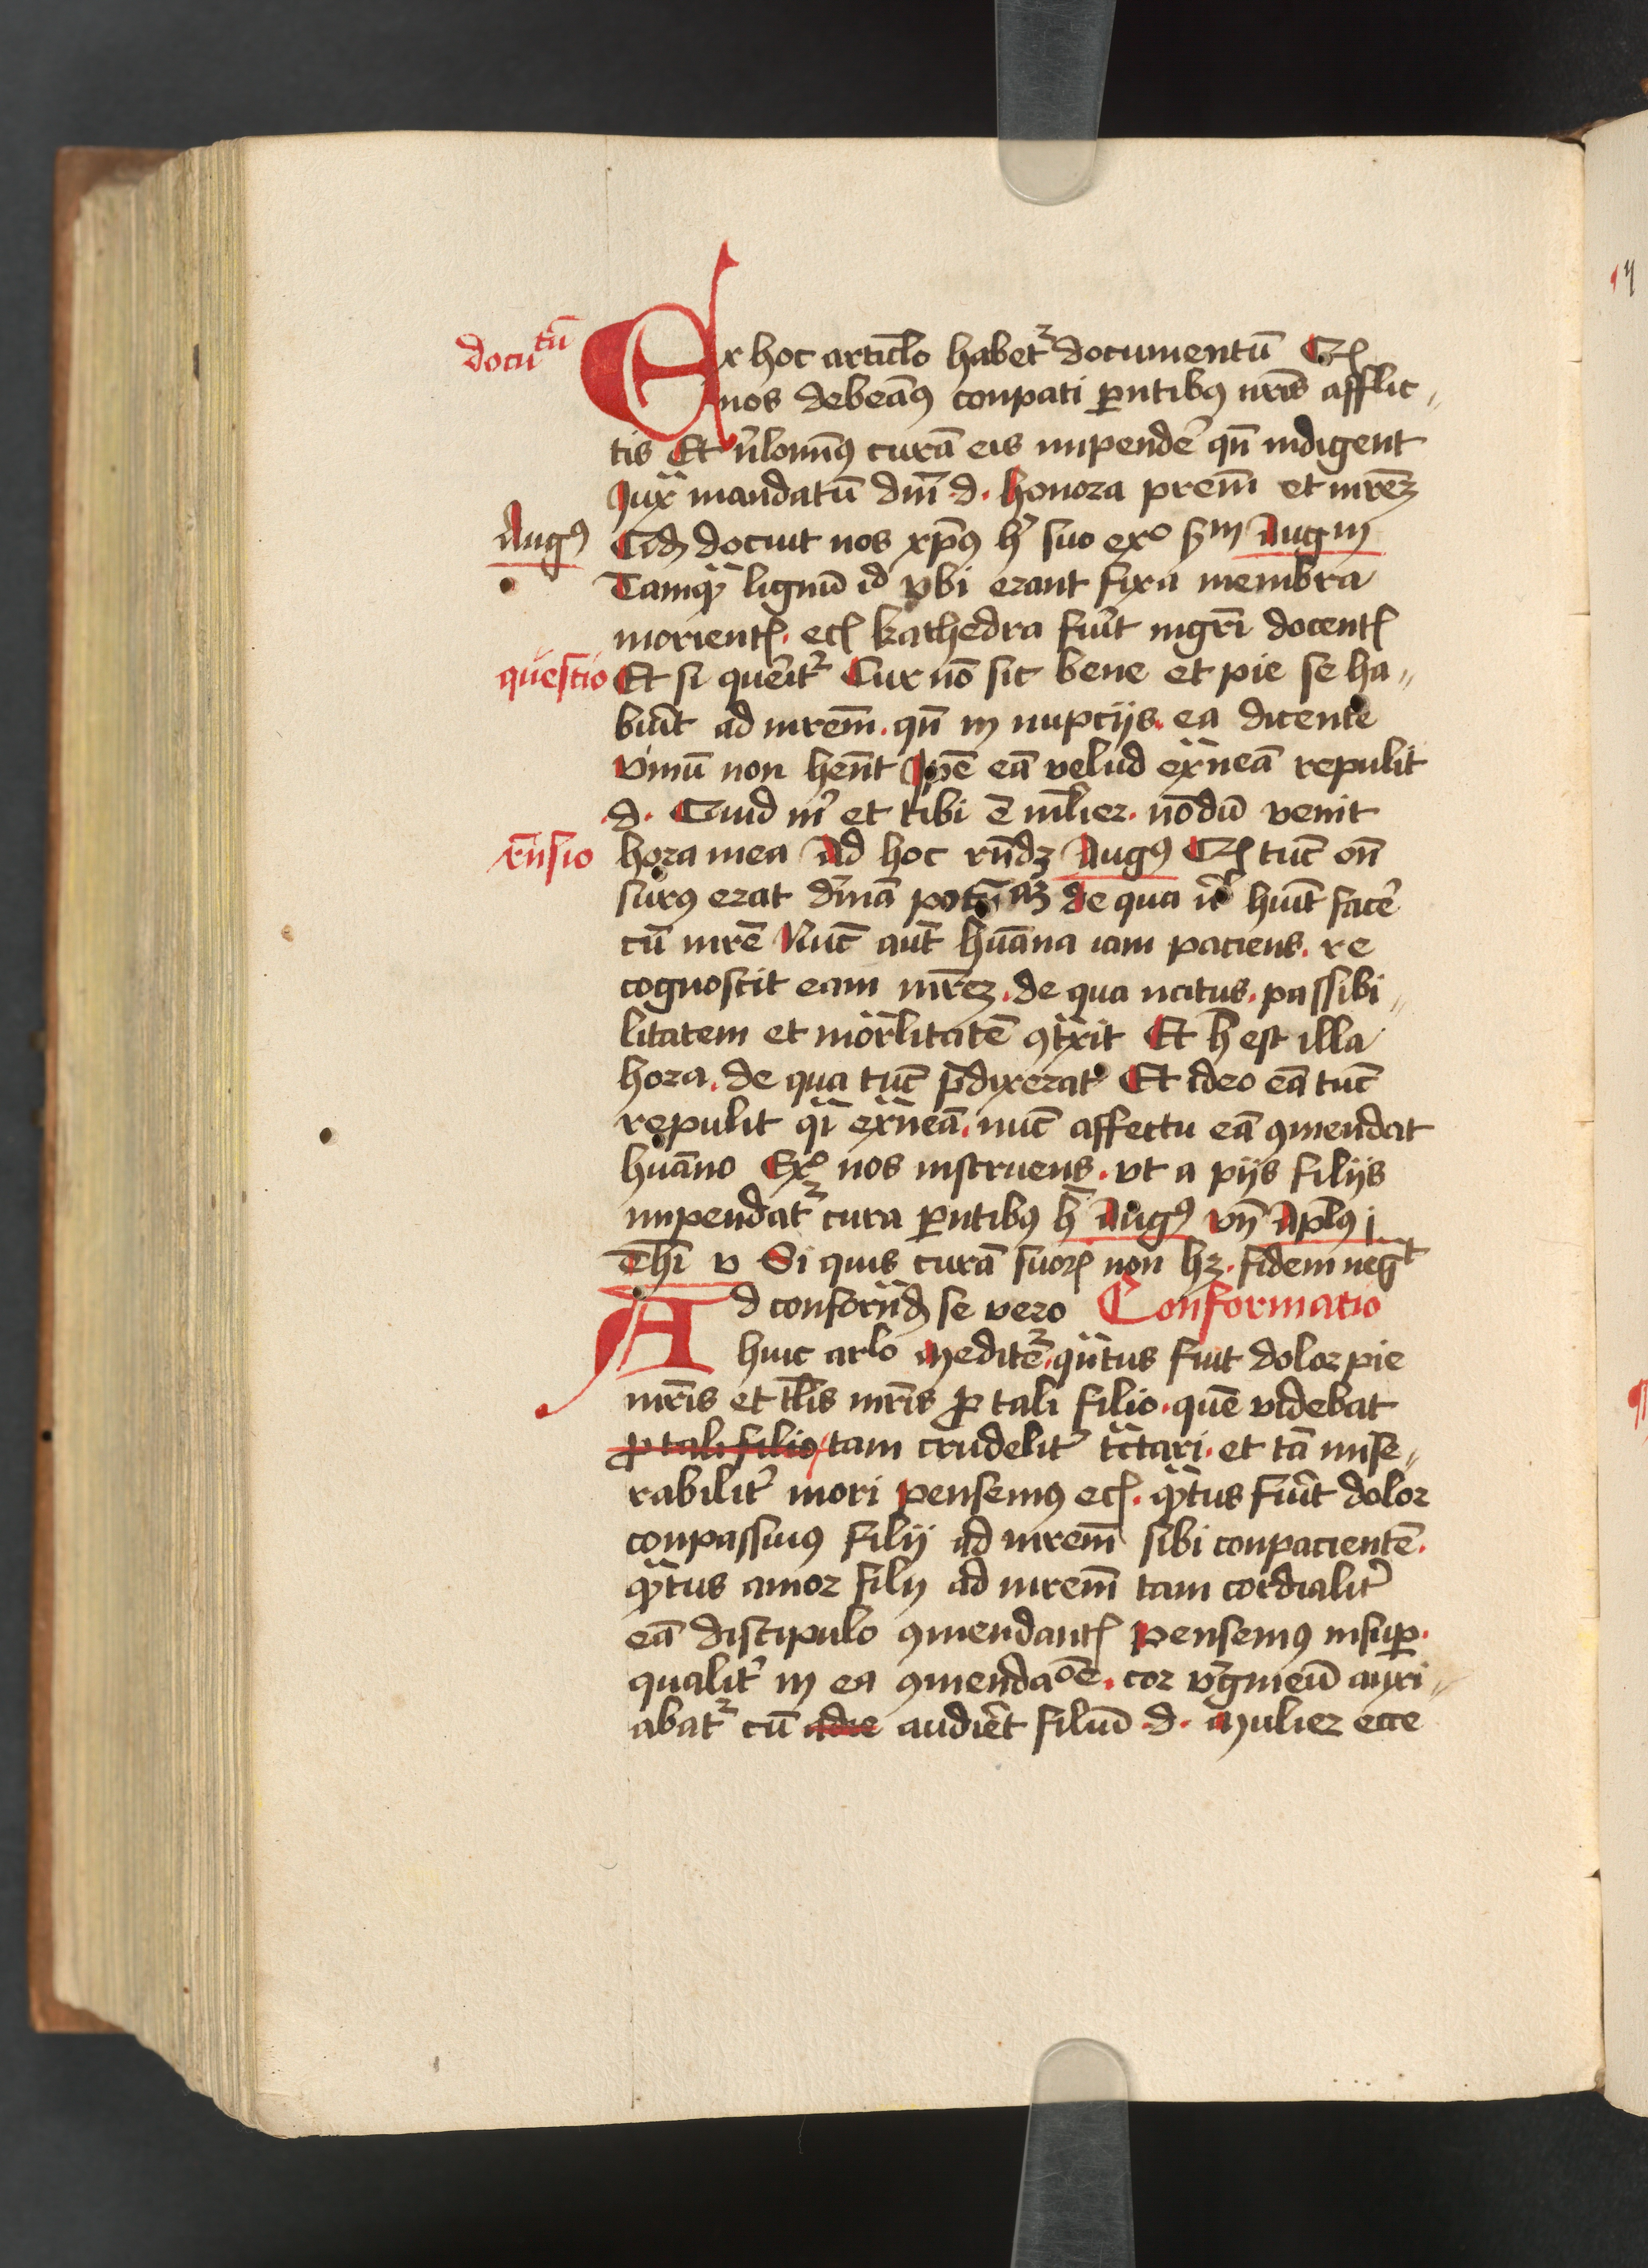 docutū
Ex hoc articlo habetᷣ documentū Qꝫ
nos debeāꝰ conpati ꝑntibꝰ nr̄is afflic〃
tis Et nichlominꝰ curā eis impendē qn̄ indigent
Iux̄ mandatū dn̄i .d. honora prem̄ et mrēꝫ
Augꝰ
docuit nos xp̄ꝰ suo exᵒ Augm
Tamꝙ̄ lignū id vbi erant fixa membra
morientꝭ. ecꝭ kathedra fuit mgr̄i docentꝭ
questio
Et si querit᷑ Cur nō sic bene et pie se ha〃
buit ad mrem̄. qn̄ in nupcijs. ea dicente
vinū non hen̄t Ipē eā velud ex̄neā repulit
.d. Quid m̄ et tibi ē ml̄ier. nōdū venit
rn̄sio
hora mea Ad hoc rn̄dꝫ Augꝰ Qꝫ tūc
surꝰ erat de qua huit facē
cū mrē Nūc aut̄ hūana iam paciens. re
cognoscit eam mrēꝫ. de qua natus. passibi〃
litatem et mor̄litatē ꝯtx̄it Et h̄ est illa
hora. de qua tūc p̄dixerat Et ideo eā tūc
repulit q̄i ex̄neā. nūc affectu eā ꝯmendat
hūano Exᵒ nos instruens. vt a pijs filijs
impendat᷑ cura ꝑntibꝰ h̄ Augꝰ vn̄ Apl̄ꝰ j
Thī v Si quis curā suorꝭ non hꝫ. fidem negᵗ
Ad conforn̄dꝭ se vero Conformatio
huic arlo meditē᷑. qn̄tus fuit dolor pie
mr̄is et tl̄is mr̄is ꝓ tali filio. quē videbat
ꝓ tali filio tam crudelit̄ tc̄tari. et tā mise〃
rabilit̄ mori pensemꝰ ecꝭ. ꝙ̄tus fuit dolor
conpassiuꝰ filij ad mrem̄ sibi conpacientē.
ꝙ̄tus amor filij ad mrem̄ tam cordialit̄
eā discipulo ꝯmendantꝭ pensemꝰ insuꝑ.
qualit̄ in ea ꝯmendaōe. cor vḡineū anxi〃
abat᷑ cū adie audiēt filiū .d. mulier ecce